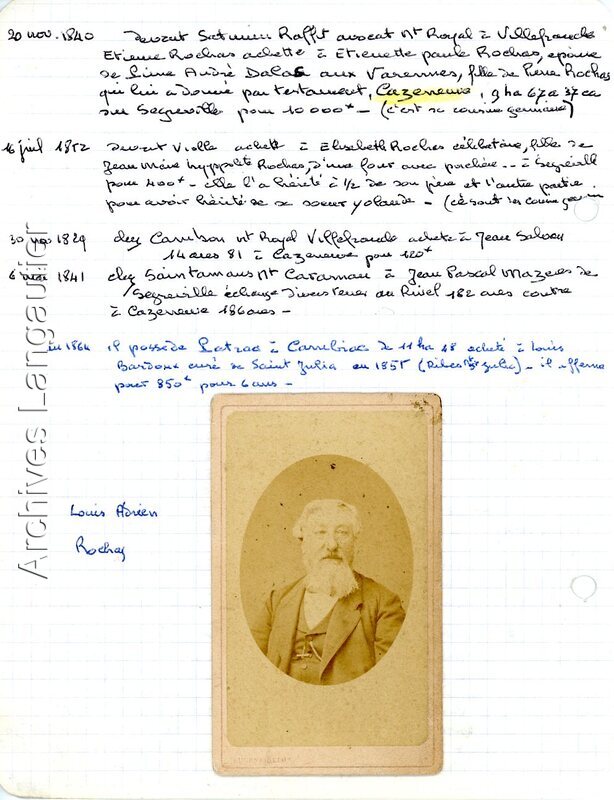 20 nov. 1840 devant Saturnin Raffit avocat Nt Royal à Villefranche
Etienne Rochas achette à Etienette paule Rochas, epouse
de André Dalas aux Varennes, fille de Pierre Rochas
qui lui a donné par testament, Cazeneuve, 9 ha 67 a 37 ca
sur Segreville pour 10 000+ - (c'est sa cousine germaine)
16 1852 devant Vialle achette à Elisabeth Rochas célibataire, fille de
Jean Marie hyppolite Rochas, d'une four avec porchère -- à Segreville
pour 400+ - elle l'a hérité à 1/2 de son père et l'autre partie
pour avoir hérité de sa soeur yolande -
30 1829 chez Nt Royal Villefranche achete à Jean
14 ares 81 à Cazeneuve pour 120+
6 1841 chez Saintamans Nt Caraman à Jean Pascal Mazeres de
Segreville échange divers terres au Rivel 182 ares contre
à Cazeneuve 186 ares -
1864 il possède à Cambiac de 11 ha 48 acheté à Louis
Bardoux curé de Saint Julia en 1855 (Ribes Nt St Julia) - il afferme
pour 850+ pour 6 ans -
Archives Langautier
Louis Adrien
Rochas